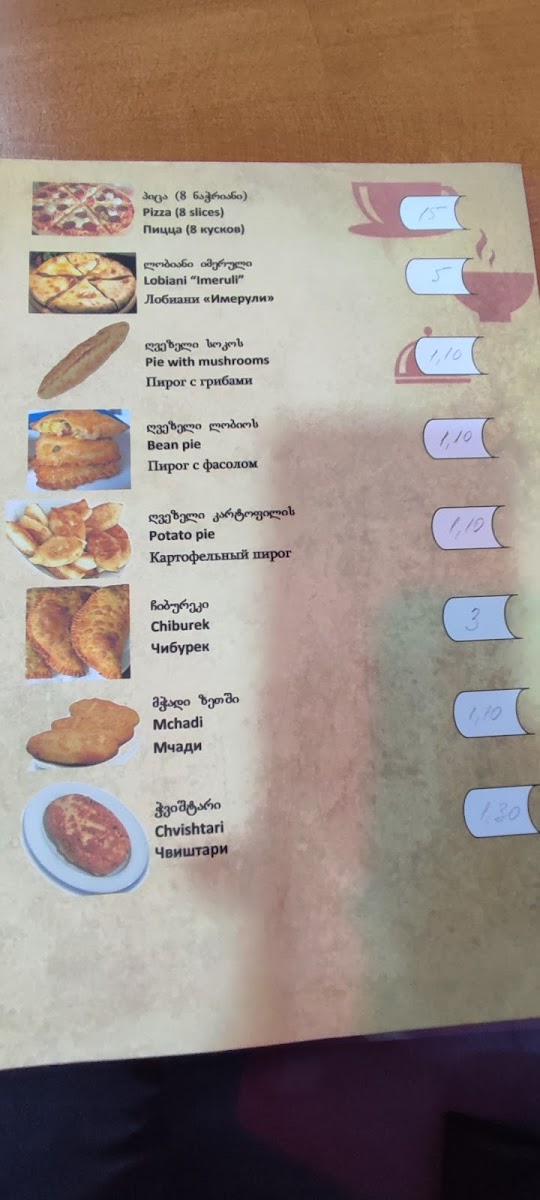 პიცა (8 ნაჭრიანი)
Pizza (8 slices)
Пицца (8 кусков)
15
ლობიანი იმერული
Lobiani “Imeruli”
Лобиани «Имерули»
5
ღვეზელი სოკოს
Pie with mushrooms
Пирог с грибами
1,10
ღვეზელი ლობიოს
Bean pie
Пирог с фасолом
1,10
ღვეზელი კარტოფილის
Potato pie
Картофельный пирог
1,10
ჩიბურეკი
Chiburek
Чибурек
3
მჭადი ზეთში
Mchadi
Мчади
1,10
ჭვიშტარი
Chvishtari
Чвиштари
1,30